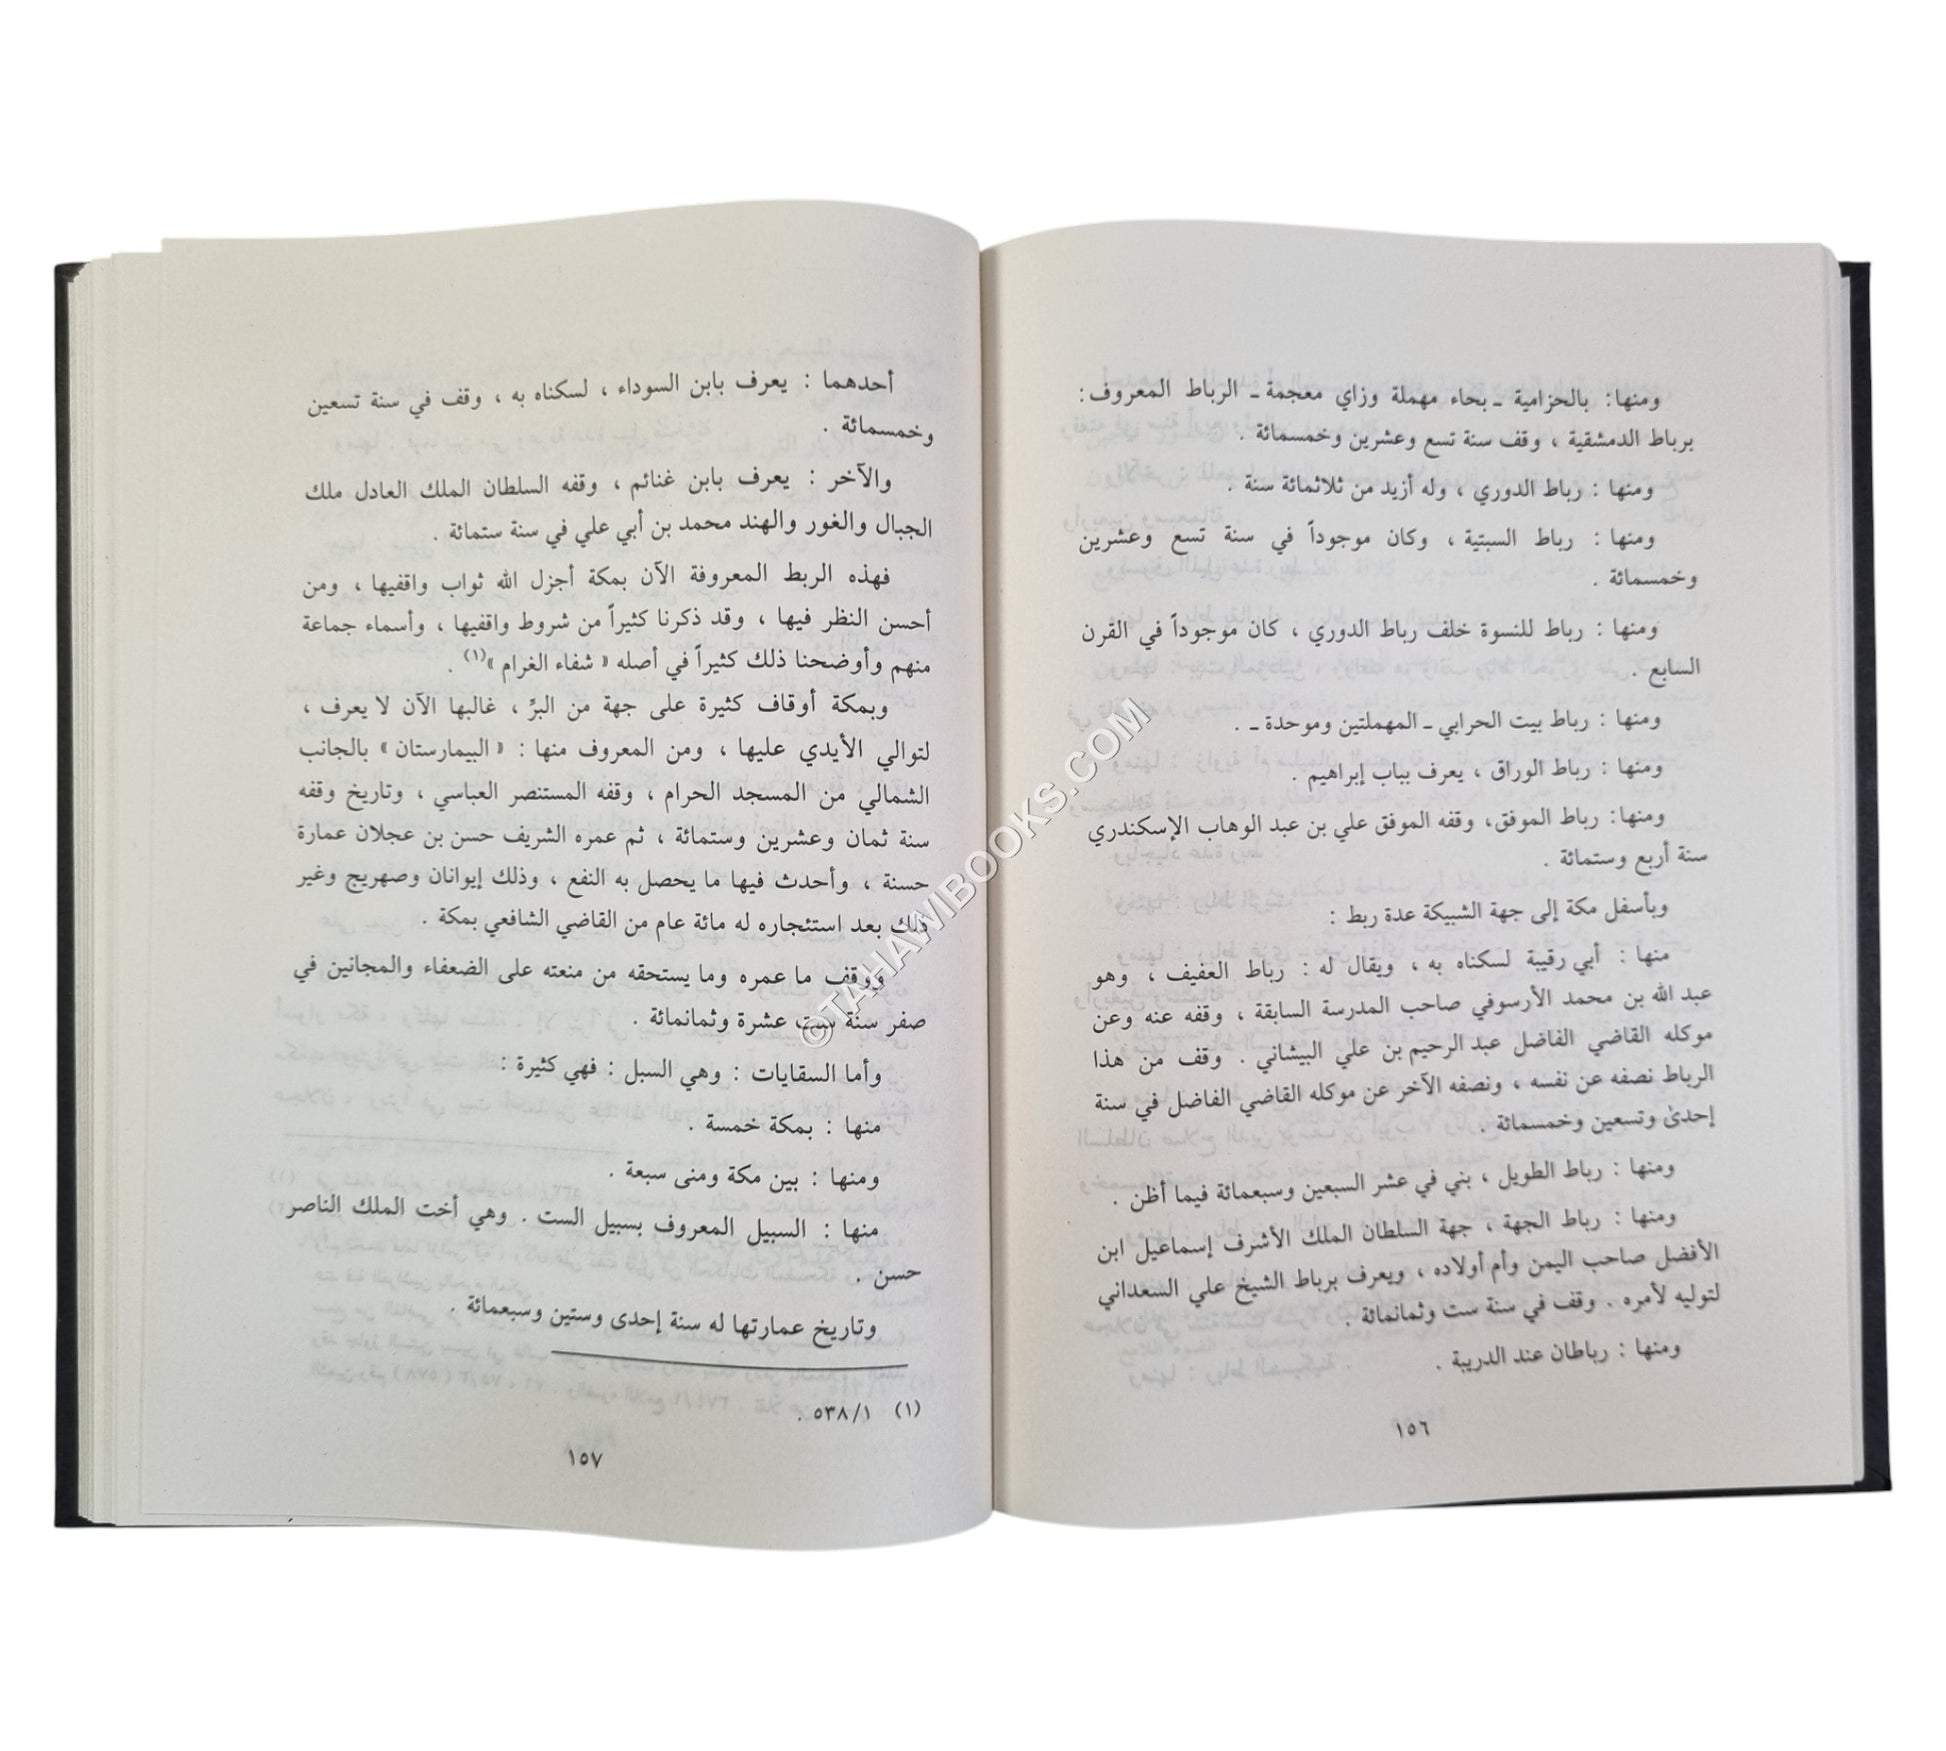 ومنها: بالحزامية ـ بحاء مهملة وزاي معجمة ـ الرباط المعروف:
برباط الدمشقية ، وقف سنة تسع وعشرين وخمسمائة .
ومنها : رباط الدوري ، وله أزيد من ثلاثمائة سنة .
ومنها : رباط السبتية ، وكان موجوداً في سنة تسع وعشرين
وخمسمائة .
ومنها : رباط للنسوة خلف رباط الدوري ، كان موجوداً في القرن
السابع .
ومنها : رباط بيت الحرابي ـ المهملتين وموحدة ـ .
ومنها : رباط الوراق ، يعرف بباب إبراهيم .
ومنها: رباط الموفق، وقفه الموفق علي بن عبد الوهاب الإسكندري
سنة أربع وستمائة .
وبأسفل مكة إلى جهة الشبيكة عدة ربط :
منها : أبي رقيبة لسكناه به ، ويقال له : رباط العفيف ، وهو
عبد الله بن محمد الأرسوفي صاحب المدرسة السابقة ، وقفه عنه وعن
موكله القاضي الفاضل عبد الرحيم بن علي البيشاني . وقف من هذا
الرباط نصفه عن نفسه ، ونصفه الآخر عن موكله القاضي الفاضل في سنة
إحدىٰ وتسعين وخمسمائة .
ومنها : رباط الطويل ، بني في عشر السبعين وسبعمائة فيما أظن .
ومنها : رباط الجهة ، جهة السلطان الملك الأشرف إسماعيل ابن
الأفضل صاحب اليمن وأم أولاده ، ويعرف برباط الشيخ علي السعداني
لتوليه لأمره . وقف في سنة ست وثمانمائة .
ومنها : رباطان عند الدريبة .
١٥٦
أحدهما : يعرف بابن السوداء ، لسكناه به ، وقف في سنة تسعين
وخمسمائة .
والآخر : يعرف بابن غنائم ، وقفه السلطان الملك العادل ملك
الجبال والغور والهند محمد بن أبي علي في سنة ستمائة .
فهذه الربط المعروفة الآن بمكة أجزل الله ثواب واقفيها ، ومن
أحسن النظر فيها ، وقد ذكرنا كثيراً من شروط واقفيها ، وأسماء جماعة
منهم وأوضحنا ذلك كثيراً في أصله « شفاء الغرام »(١) .
وبمكة أوقاف كثيرة على جهة من البرِّ ، غالبها الآن لا يعرف ،
لتوالي الأيدي عليها ، ومن المعروف منها : « البيمارستان » بالجانب
الشمالي من المسجد الحرام ، وقفه المستنصر العباسي ، وتاريخ وقفه
سنة ثمان وعشرين وستمائة ، ثم عمره الشريف حسن بن عجلان عمارة
حسنة ، وأحدث فيها ما يحصل به النفع ، وذلك إيوانان وصهريج وغير
ذلك بعد استئجاره له مائة عام من القاضي الشافعي بمكة .
ووقف ما عمره وما يستحقه من منعته على الضعفاء والمجانين في
صفر سنة ست عشرة وثمانمائة .
وأما السقايات : وهي السبل : فهي كثيرة :
منها : بمكة خمسة .
ومنها : بين مكة ومنى سبعة .
منها : السبيل المعروف بسبيل الست . وهي أخت الملك الناصر
حسن .
وتاريخ عمارتها له سنة إحدى وستين وسبعمائة .
(١) ٥٣٨/١ .
١٥٧
©TAHAWIBOOKS.COM